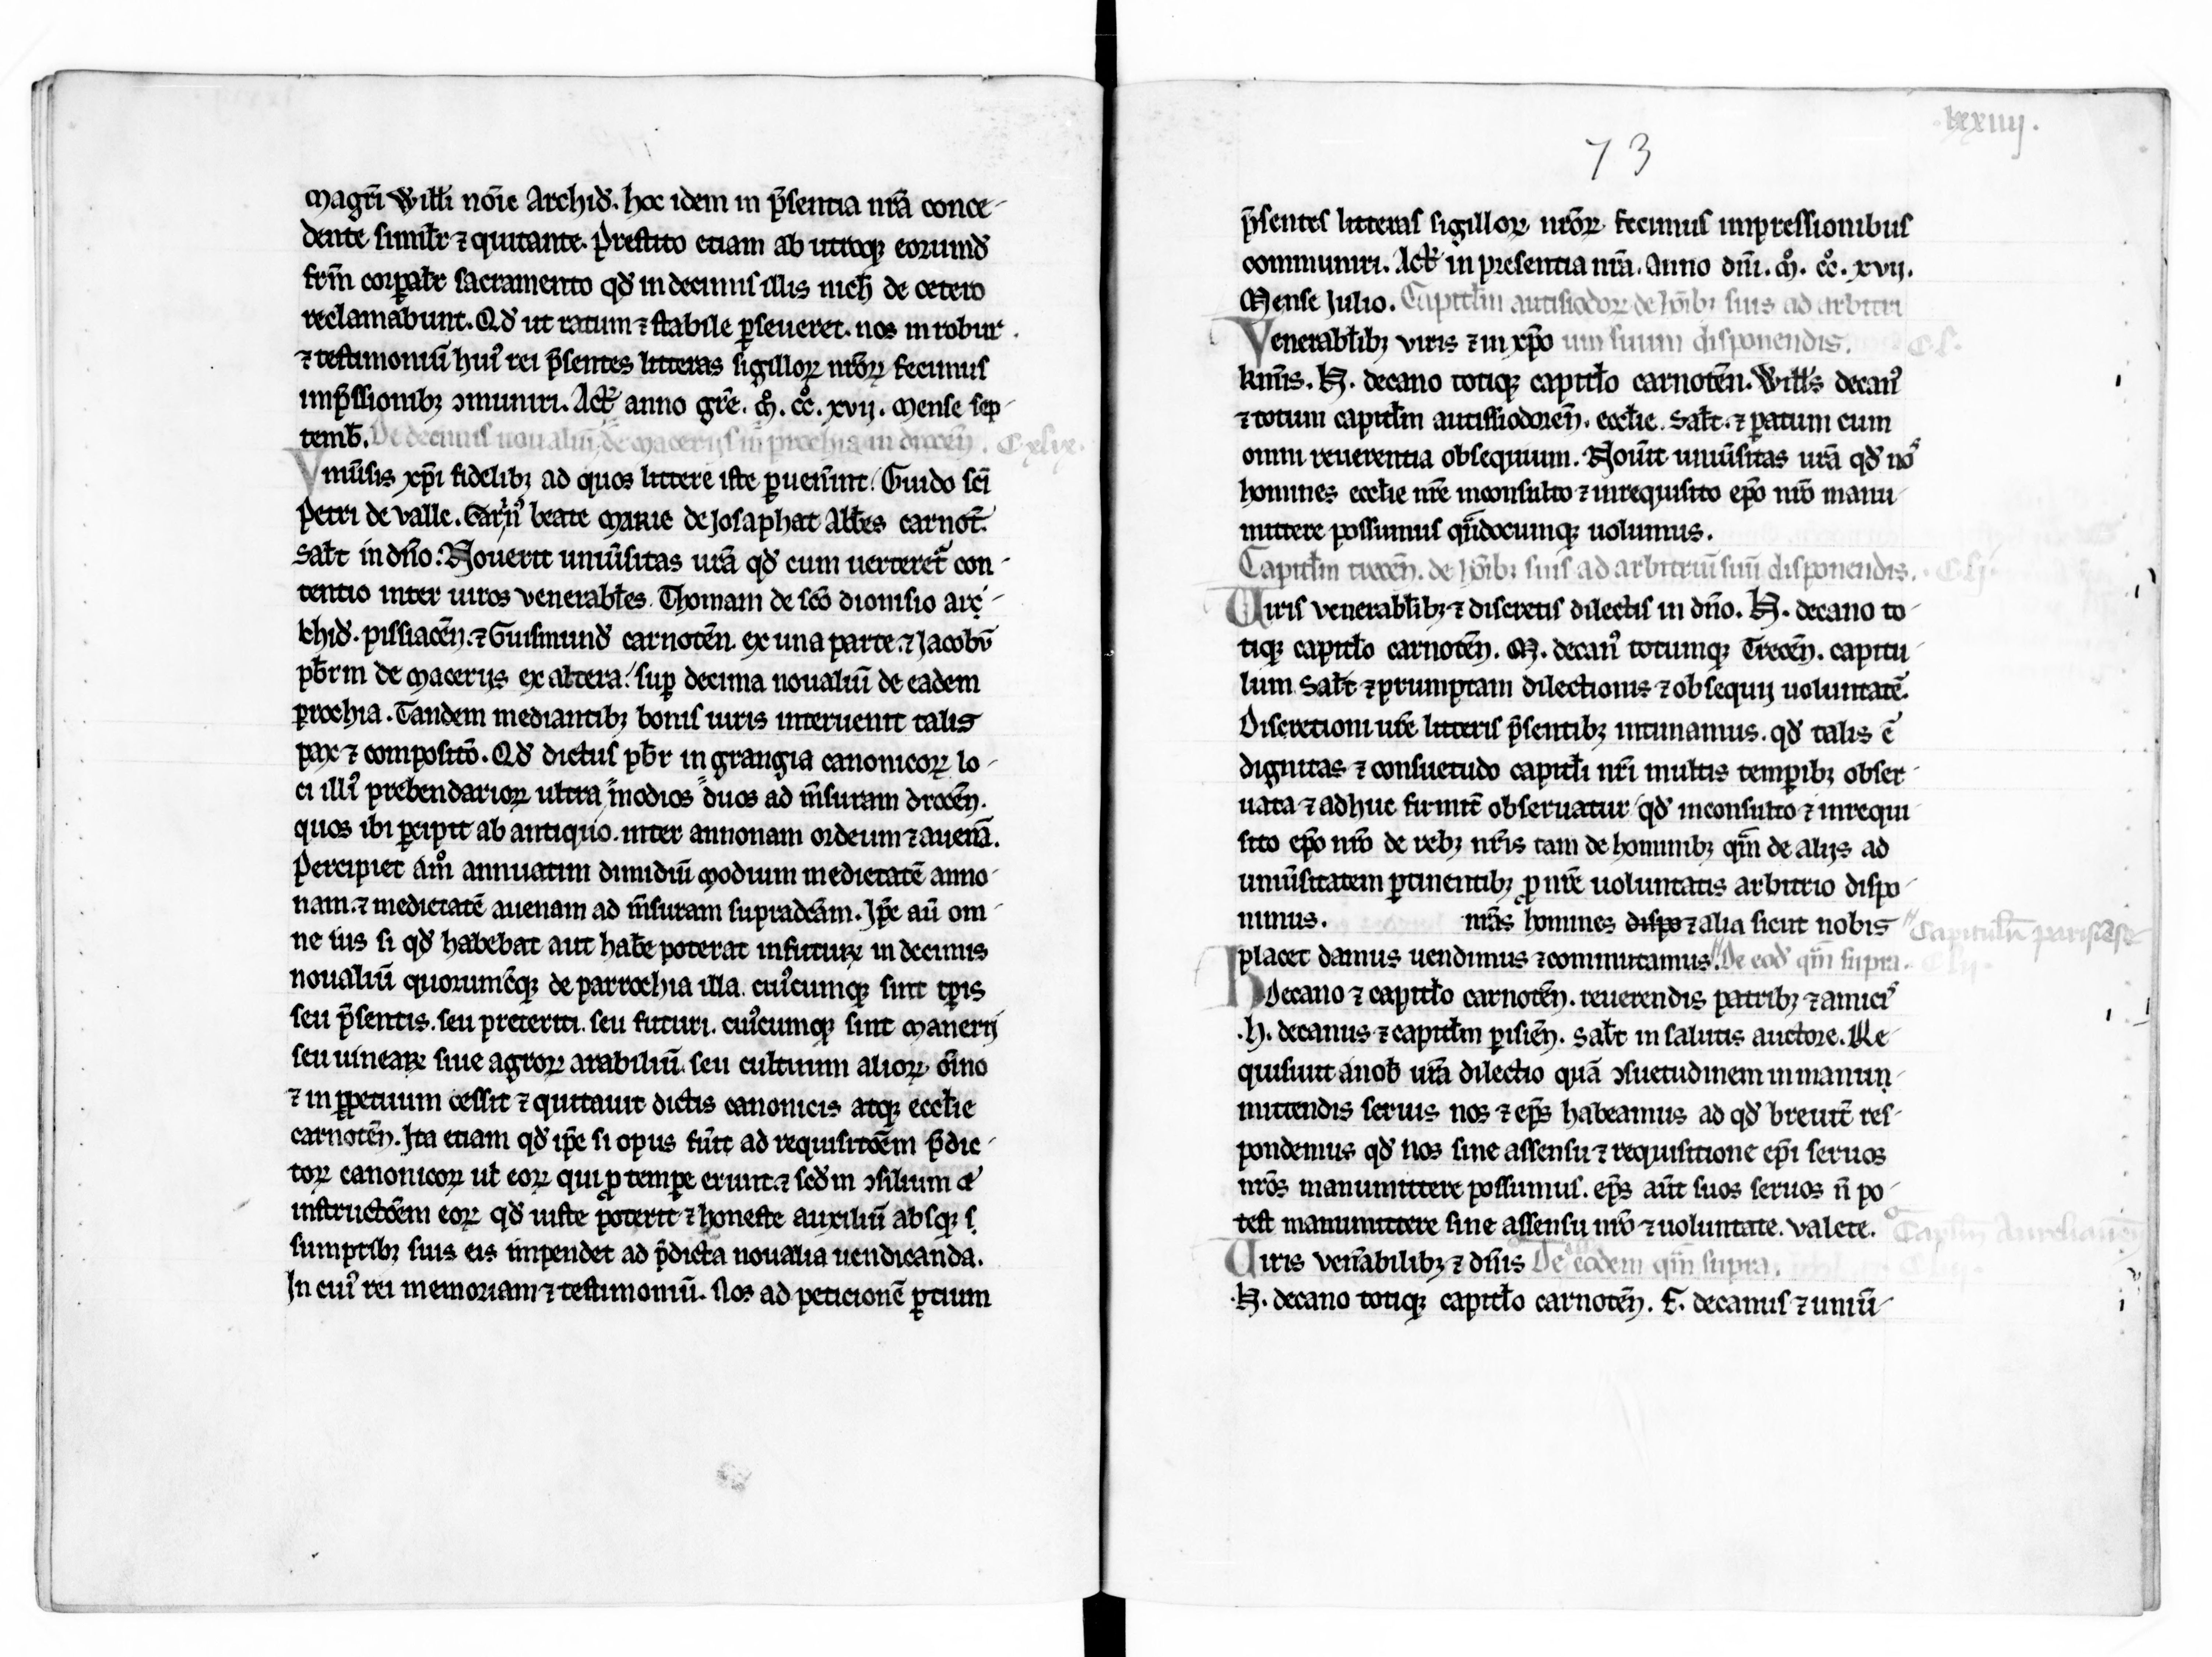 magr̃i Willi noīe Archid̃. hoc idem in p̃sentia nr̃a conce-
dente similr̃ ⁊ quitante. Prestito etiam ab utroqꝫ eorumd̃
frm̃ corꝑalr̃ sacramento qd̃ in decimis illis nich̃ de cetero
reclamabunt. Qd̃ ut ratum ⁊ stabile ꝑseueret. nos in robur.
⁊ testimoniũ huiꝰ rei p̃sentes litteras sigilloꝝ nr̃oꝝ fecimus
imp̃ssionibꝫ ꝯmuniri. Act̃ anno gr̃e. m̊. cc̊. xvij. mense sep-
temb̃. De decimis noualiũ de maceriis in prochia in drocen̄. C xlix.
Vniũsis xp̃i fidelibꝫ ad quos littere iste ꝑuenĩnt. Guido sc̃i
Petri de valle. Garñ beate marie de Josaphat Abb̃es carnot̃.
Salt̃ in dño. Nouerit uniũsitas ur̃a qd̃ cum uerteret᷑ con-
tentio inter uiros venerabl̃es. Thomam de sc̃o dionisio arc-
khid̃. pissiacen̄. ⁊ Guismund̃ carnoten̄. ex una parte. ⁊ Jacobũ
pb̃rm de macerijs ex altera. suꝑ decima noualiũ de eadem
ꝑrochia. Tandem mediantibꝫ bonis uiris interuenit talis
pax ⁊ compositõ. Qd̃ dictus pb̃r in grangia canonicoꝝ lo-
ci illiꝰ prebendarioꝝ ultra modios duos ad m̃suram drocen̄.
quos ibi ꝑcipit ab antiquo. inter annonam ordeum ⁊ auenã.
Percipiet am̊ annuatim dimidiũ modium medietatẽ anno-
nam. ⁊ medietatẽ auenam ad m̃suram supradc̃am. Ip̃e aũ om-
ne ius si qd̃ habebat aut hab̃e poterat in futuꝝ in decimis
noualiũ quorumcũqꝫ de parrochia illa. cuiꝰcumqꝫ sint tp̃is
seu p̃sentis. seu preteriti. seu futuri. cuiꝰcumqꝫ sint manerij
seu uineaꝝ siue agroꝝ arabiliũ. seu cultuum alioꝝ. õino
⁊ in ꝑpetuum cessit ⁊ quitauit dictis canonicis atqꝫ eccl̃ie
carnoten̄. Ita etiam qd̃ ip̃e si opus fũit ad requisitoẽm p̃dic-
toꝝ canonicoꝝ ul̃ eoꝝ qui ꝓ temꝑe erunt. ⁊ scd̃m ꝯsilium ⁊
instructoẽm eoꝝ qd̃ iuste poterit ⁊ honeste auxiliũ absqꝫ s.
sumptibꝫ suis eis impendet ad p̃dicta noualia uendicanda.
In cuiꝰ rei memoriam ⁊ testimoniũ. Nos ad peticionẽ ꝑtium
lxxiiij.
73
p̃sentes litteras sigilloꝝ nr̃oꝝ fecimus impressionibus
communiri. Act̃ in presentia nr̃a. Anno dñi. m̊. cc̊. xvij.
Mense Julio. Capitl̃m autisiodoꝝ de hõibꝫ suis ad arbitri
Venerabl̃ibꝫ viris ⁊ in xp̃o um suum disponendis. C.l.
km̃is. H. decano totiqꝫ capitl̃o carnoten̄. Will̃s decanꝰ
⁊ totum capitl̃m autissiodoren̄. eccl̃ie. Salt̃. ⁊ ꝑatum cum
omni reuerentia obsequium. Nouĩt uniũsitas ur̃a qd̃ noˢ
homines eccl̃ie nr̃e inconsulto ⁊ inrequisito ep̃o nr̃o manu-
mittere possumus qñdocumqꝫ uolumus.
Capitl̃m trecen̄. de hõibꝫ suis ad arbitriũ suũ disponendis. C.lj.
Viris venerabl̃ibꝫ ⁊ discretis dilectis in dño. H. decano to-
tiqꝫ capitl̃o carnoten̄. M. decanꝰ totumqꝫ Trecen̄. capitu-
lum Salt̃ ⁊ prumptam dilectionis ⁊ obsequij uoluntatẽ.
Discretioni ur̃e litteris p̃sentibꝫ intimamus. qd̃ talis ẽ
dignitas ⁊ consuetudo capitl̃i nr̃i multis temꝑibꝫ obser-
uata ⁊ adhuc firmit̃ obseruatur qd̃ inconsulto ⁊ inrequi-
sito ep̃o nr̃o de rebꝫ nr̃is tam de hominibꝫ qm̃ de alijs ad
uniũsitatem ꝑtinentibꝫ ꝓ nr̃e uoluntatis arbitrio dispo-
nimus. nr̃as homines dispo ⁊ alia sicut nobis Capitulũ parisiẽse
placet damus uendimus ⁊ commutamus. De eod̃ qm̃ supra. C lij.
Decano ⁊ capitl̃o carnoten̄. reuerendis patribꝫ ⁊ amicis
.H. decanus ⁊ capitl̃m ꝑisien̄. Salt̃ in salutis auctore. Re-
quisiuit a nob̃ ur̃a dilectio quã ꝯsuetudinem in manun-
mittendis seruis nos ⁊ ep̃s habeamus ad qd̃ breuit̃ res-
pondemus qd̃ nos sine assensu ⁊ requisitione ep̃i seruos
nr̃os manumittere possumus. ep̃s aũt suos seruos ñ po-
test manumittere sine assensu nr̃o ⁊ uoluntate. valete. Caplm̃ Aurelianen̄
Viris ven̄abilibꝫ ⁊ dñis De eodem qm̃ supra.
.H. decano totiqꝫ capitl̃o carnoten̄. F. decanus ⁊ uniũ-